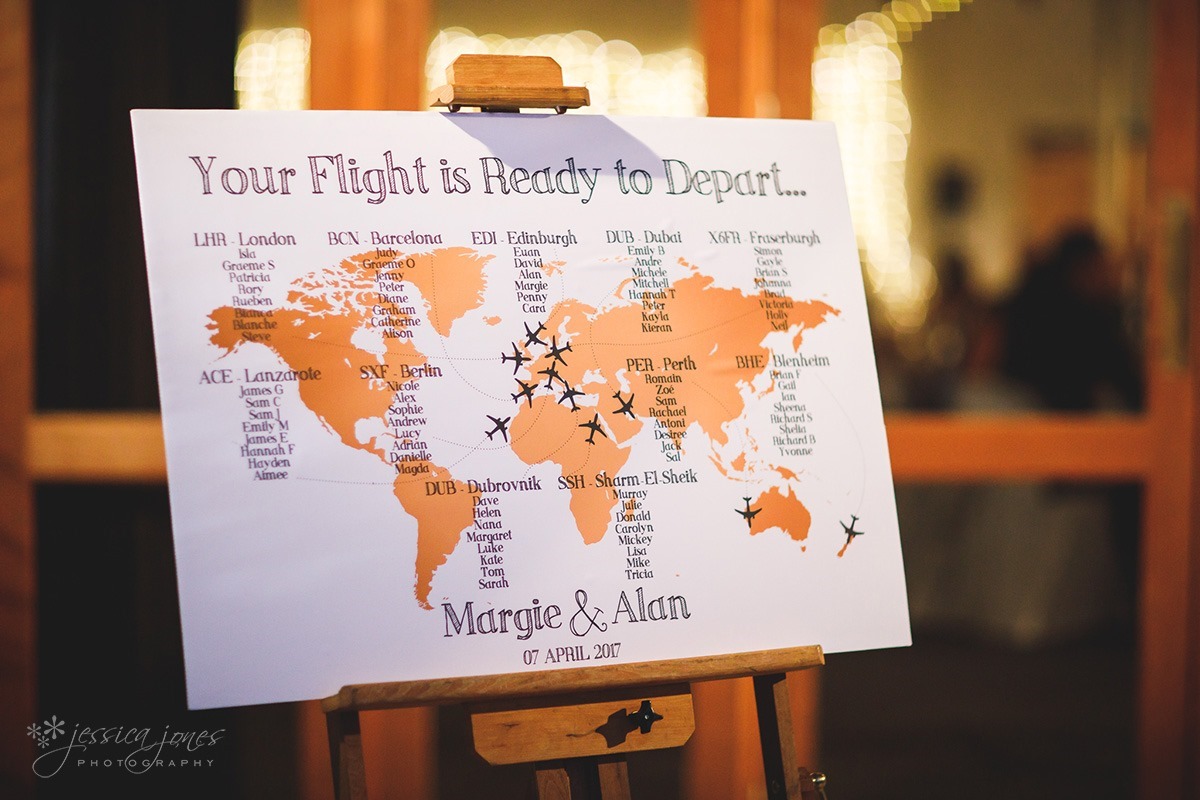 Your Flight is Ready to Depart...
LHR - London
Isla
Graeme S
Patricia
Rory
Rueben
Bianca
Blanche
Steve
BCN - Barcelona
Judy
Graeme O
Jenny
Peter
Diane
Graham
Catherine
Alison
EDI - Edinburgh
Euan
David
Alan
Margie
Penny
Cara
DUB - Dubai
Emily B
Andre
Michele
Mitchell
Hannah T
Peter
Kayla
Kieran
X6FR - Fraserburgh
Simon
Gayle
Brian S
Johanna
Brad
Victoria
Holly
Neil
ACE - Lanzarote
James G
Sam C
Sam J
Emily M
James E
Hannah F
Hayden
Aimee
SXF - Berlin
Nicole
Alex
Sophie
Andrew
Lucy
Adrian
Danielle
Magda
PER - Perth
Romain
Zoe
Sam
Rachael
Antoni
Desiree
Jack
Sal
BHE - Blenheim
Brian F
Gail
Ian
Sheena
Richard S
Shelia
Richard B
Yvonne
DUB - Dubrovnik
Dave
Helen
Nana
Margaret
Luke
Kate
Tom
Sarah
SSH - Sharm-El-Sheik
Murray
Julie
Donald
Carolyn
Mickey
Lisa
Mike
Tricia
Margie & Alan
07 APRIL 2017
jessica jones
PHOTOGRAPHY